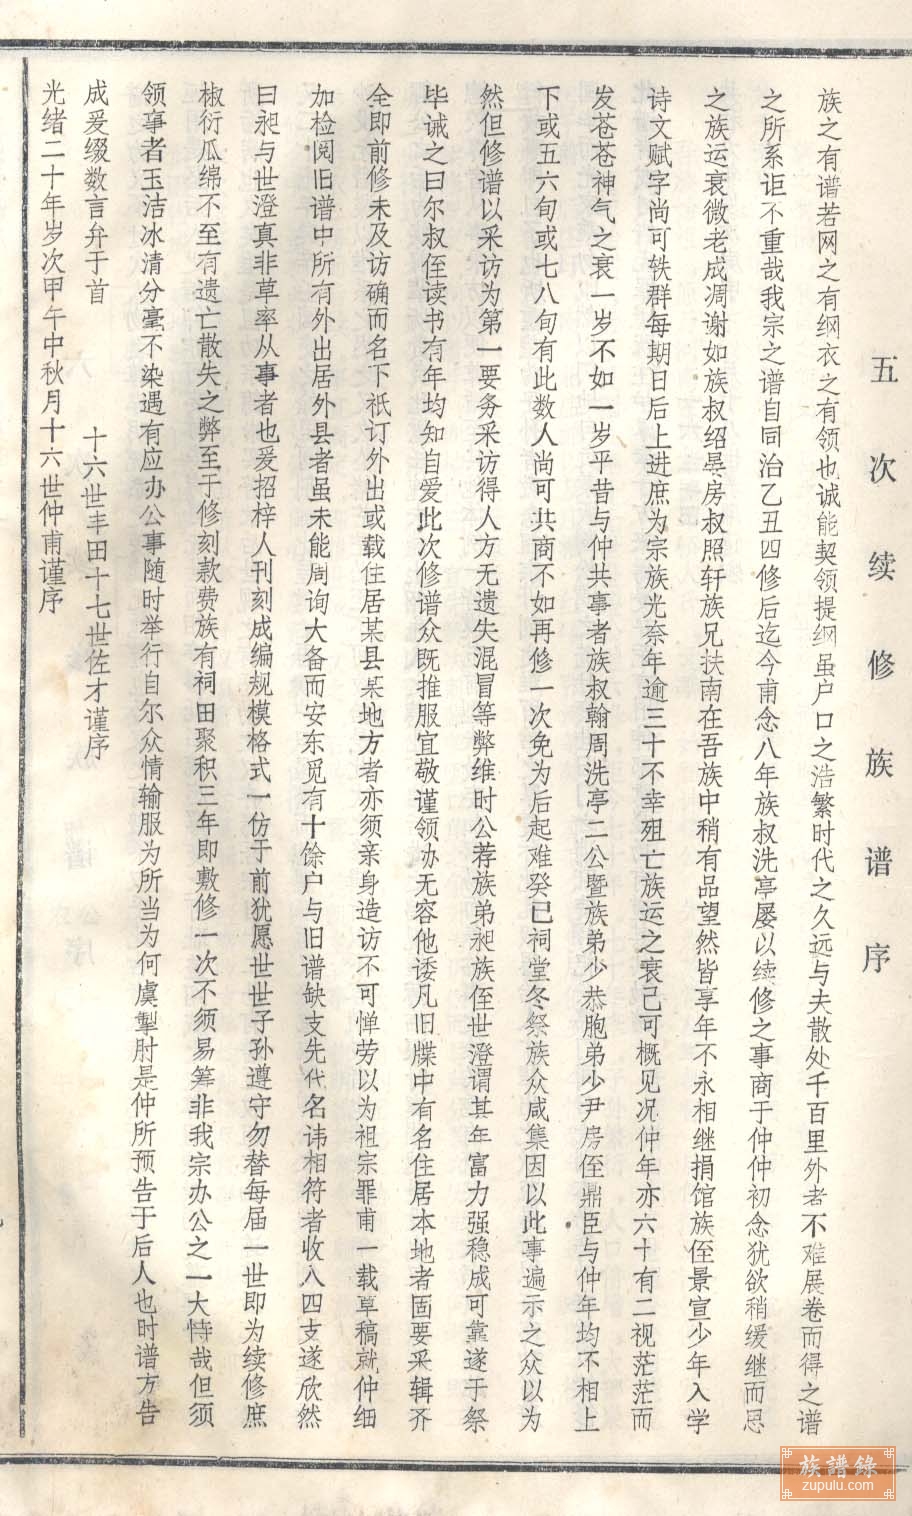 五次续修族谱序
族之有谱若网之有纲衣之有领也诚能契领提纲虽户口之浩繁时代之久远与夫散处千百里外者不难展卷而得之谱
之所系讵不重哉我宗之谱自同治乙丑四修后迄今甫念八年族叔洗亭屡以续修之事商于仲仲初念犹欲稍缓继而思
之族运衰微老成凋谢如族叔绍晏房叔照轩族兄扶南在吾族中稍有品望然皆享年不永相继捐馆族侄景宣少年入学
诗文赋字尚可轶群每期日后上进庶为宗族光奈年逾三十不幸殂亡族运之衰己可概见况仲年亦六十有二视茫茫而
发苍苍神气之衰一岁不如一岁平昔与仲共事者族叔翰周洗亭二公暨族弟少恭胞弟少尹房侄鼎臣与仲年均不相上
下或五六旬或七八旬有此数人尚可共商不如再修一次免为后起难癸巳祠堂冬祭族众咸集因以此事遍示之众以为
然但修谱以采访为第一要务采访得人方无遗失混冒等弊维时公荐族弟昶族侄世澄谓其年富力强稳成可靠遂于祭
毕诚之曰尔叔侄读书有年均知自爱此次修谱众既推服宜敬谨领办无容他诿凡旧牒中有名住居本地者固要采辑齐
全即前修未及访确而名下祇订外出或载住居某县某地方者亦须亲身造访不可惮劳以为祖宗罪甫一载草稿就仲细
加检阅旧谱中所有外出居外县者虽未能周询大备而安东觅有十馀户与旧谱缺支先代名讳相符者收入四支遂欣然
曰昶与世澄真非草率从事者也爰招梓人刊刻成编规模格式一仿于前犹愿世世子孙遵守勿替每届一世即为续修庶
椒衍瓜绵不至有遗亡散失之弊至于修刻款费族有祠田聚积三年即敷修一次不须易筹非我宗办公之一大恃哉但须
领事者玉洁冰清分毫不染遇有应办公事随时举行自尔众情输服为所当为何虞掣肘是仲所预告于后人也时谱方告
成爰缀数言弁于首 十六世丰田十七世佐才谨序
光绪二十年岁次甲午中秋月十六世仲甫谨序
族譜錄
zupulu.com